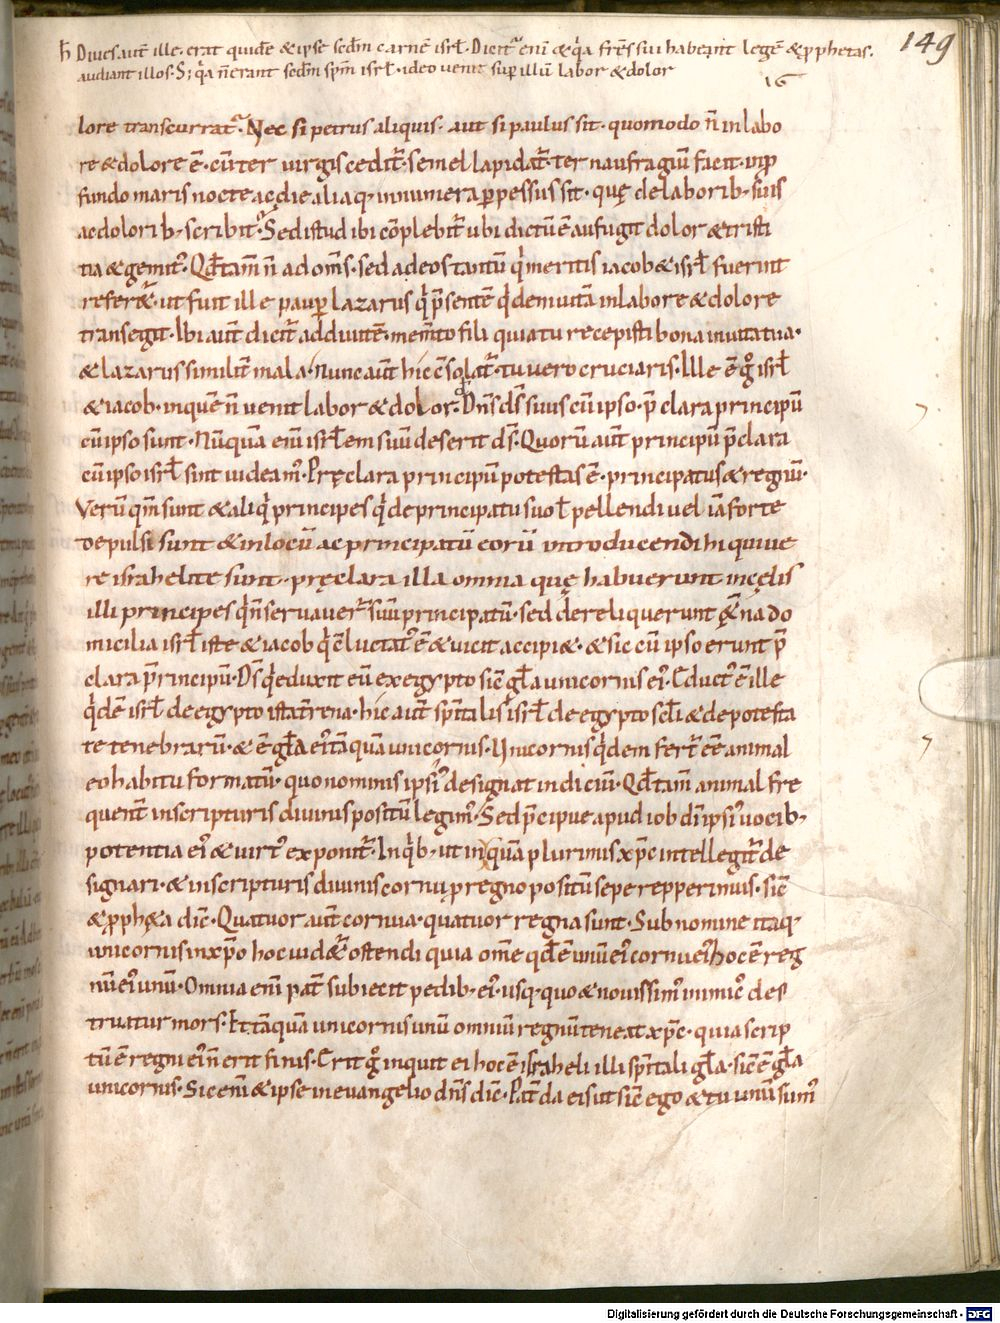 149
ħ Diues aut̄ ille. erat quidē & ipse sed̄m carnē isrł. Dicit᷑ eni & q̇a frēs sui habeant legē & ꝓphetas.
audiant illos. S; q̇a n̄ erant sed̄m sp̄m isrł. ideo uenit suꝑ illū labor & dolor
16
lore transcurrat᷑. Nec si petrus aliquis. aut si paulus sit. quomodo n̄ in labo
re & dolore ē. cū ter uirgis cedit᷑. semel lapidat᷑. ter naufragiū facit. in ꝓ
fundo maris nocte ac die aliaq; innumera ꝑpessus sit. quę de laborib; suis
ac dolorib; scribit᷑. Sed istud ibi cōplebit᷑ ubi dictū ē aufugit dolor & tristi
tia & gemit᷒. Qđ tam̄ n̄ ad om̄s. sed ad eos tantū q̇ meritis iacob & isrł fuerint
refer&᷑. ut fuit ille pauꝑ lazarus q̇ p̄sentē q̇dem uitā in labore & dolore
transegit. Ibi aut̄ dicit᷑ ad diuitē. mem̄to fili quia tu recepisti bona in uita tua.
& lazarus similit̄ mala. Nunc aut̄ hic c̄solat᷑. tu uero cruciaris. Ille ē g̊ isrł
& iacob. in quē n̄ uenit labor & dolor. Dn̄s d̄s suus cū ipso. p̄clara principū
cū ipso sunt. Nūquā eni isrłem suū deserit d̄s. Quorū aut̄ principū p̄clara
cū ipso isrł sint uideam᷒. Pręclara principū potestas ē. principatus & regnū.
Verū qm̄ sunt & aliq̇ principes q̇ de principatu suo ł pellendi uel iā forte
depulsi sunt & in locū ac principatū eorū introducendi hi qui ue
re israhelite sunt. pręclara illa omnia quę habuerunt in cęlis
illi principes q̇ n̄ seruauer᷑ suū principatū. sed dereliquerunt &̄na do
micilia isrł iste & iacob q̇ c̄luctat᷒ ē & uicit accipi&. & sic cū ipso erunt p̄
clara p̄rincipū. D̄s q̇ eduxit eū ex egypto sic̄ gła unicornis ei᷒. Educt᷒ ē ille
q̇dē isrł de egypto ista t̄rena. hic aut̄ sp̄italis isrł de egypto sc̄łi & de potesta
te tenebrarū. & ē gła ei᷒ tāquā unicornis. Unicornis q̇dem fert᷑ ēē animal
eo habitu formatū. quo nominis ipsi᷒ designat indiciū. Qđ tam̄ animal fre
quent̄ in scripturis diuinis positū legim᷒. Sed p̄cipue apud iob dn̄i ipsi᷒ uocib;
potentia ei᷒ & uirt᷒ exponit᷑. In q̇b; ut inquā plurimis xp̄c intellegit᷑ de
signari. & in scripturis diuinis cornu ꝓ regno positū sepe repperimus. sic̄
& ꝓph&a dic̄. Quatuor aut̄ cornua. quatuor regna sunt. Sub nomine itaq;
unicornis in xp̄o hoc uid&᷑ ostendi quia om̄e qđ ē unū ei᷒ cornu ei᷒ hoc ē reg
nū ei᷒ unū. Omnia eni pat̄ subiecit pedib; ei᷒. usq; quo & nouissim᷒ inimic᷒ des
truatur mors. Et tāquā unicornis unū omniū regnū teneat xp̄c. quia scrip
tū ē regni ei᷒ n̄ erit finis. Erit g̊ inquit ei hoc ē israheli illi sp̄itali gła. sic̄ ē gła
unicornis. Sic eni & ipse in euangelio dn̄s dic̄. Pat̄ da eis ut sic̄ ego & tu unū sum᷒
Digitalisierung gefördert durch die Deutsche Forschungsgemeinschaft - DFG